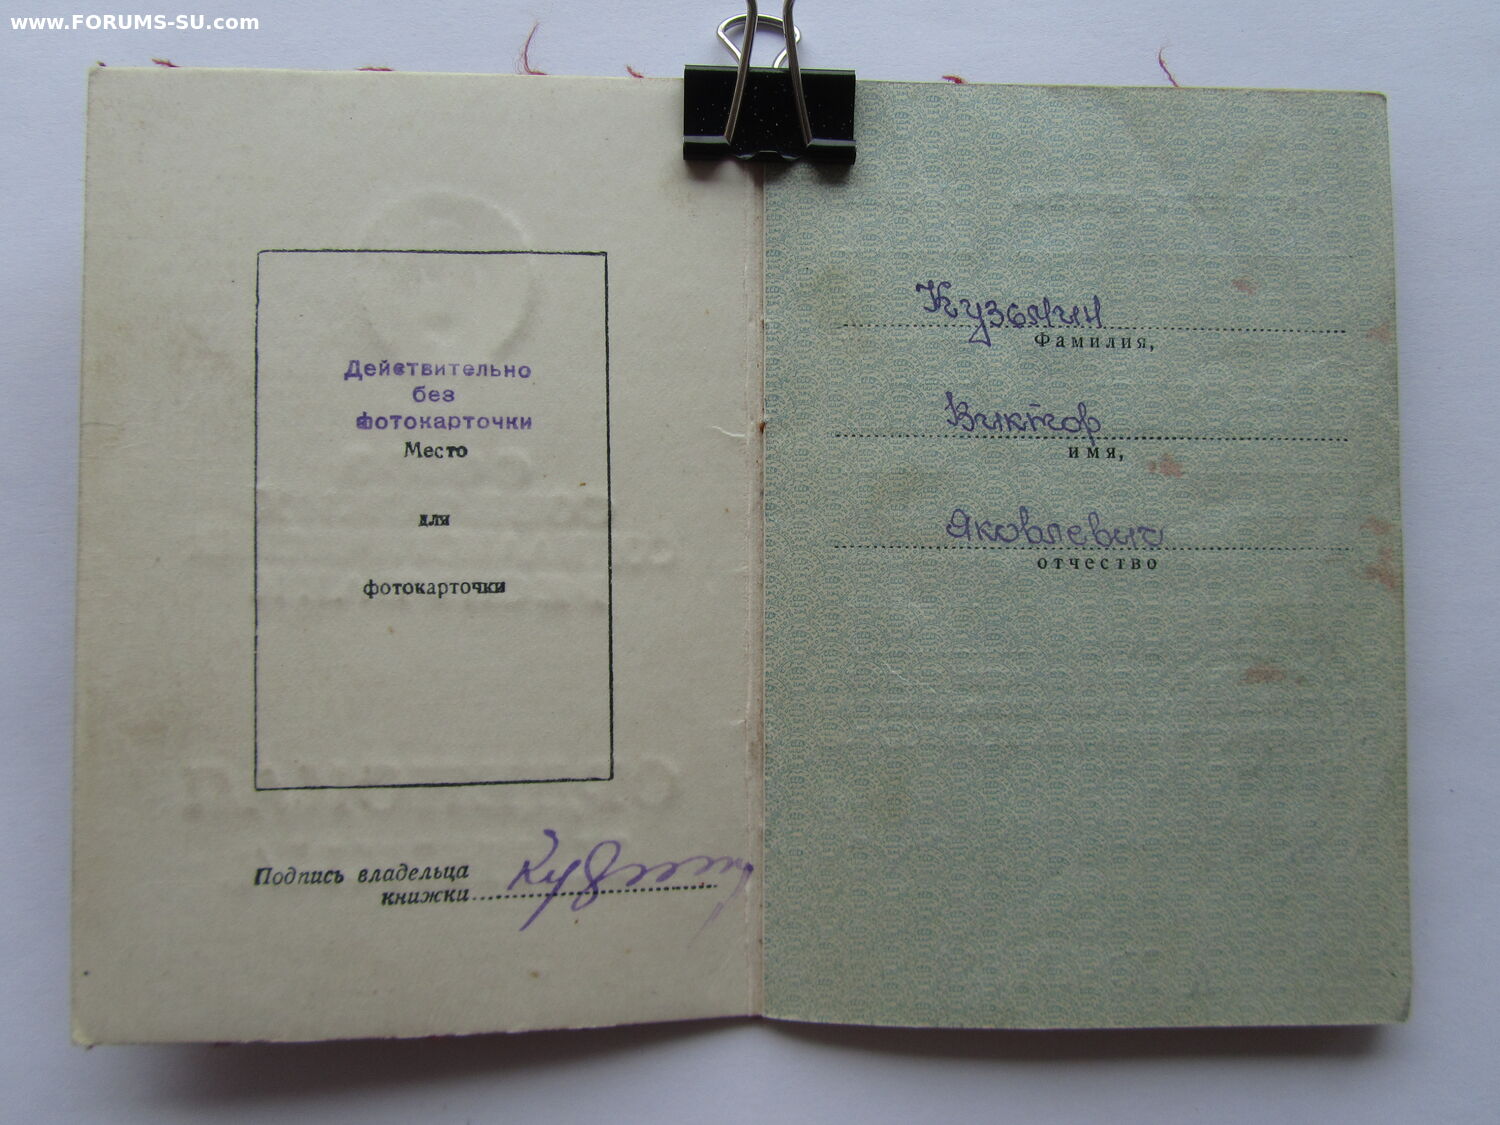 www.FORUMS-SU.com
Действительно
без
фотокарточки
Место
для
фотокарточки
Подпись владельца
книжки
Кузьмин
Фамилия,
Виктор
имя,
Яковлевич
отчество